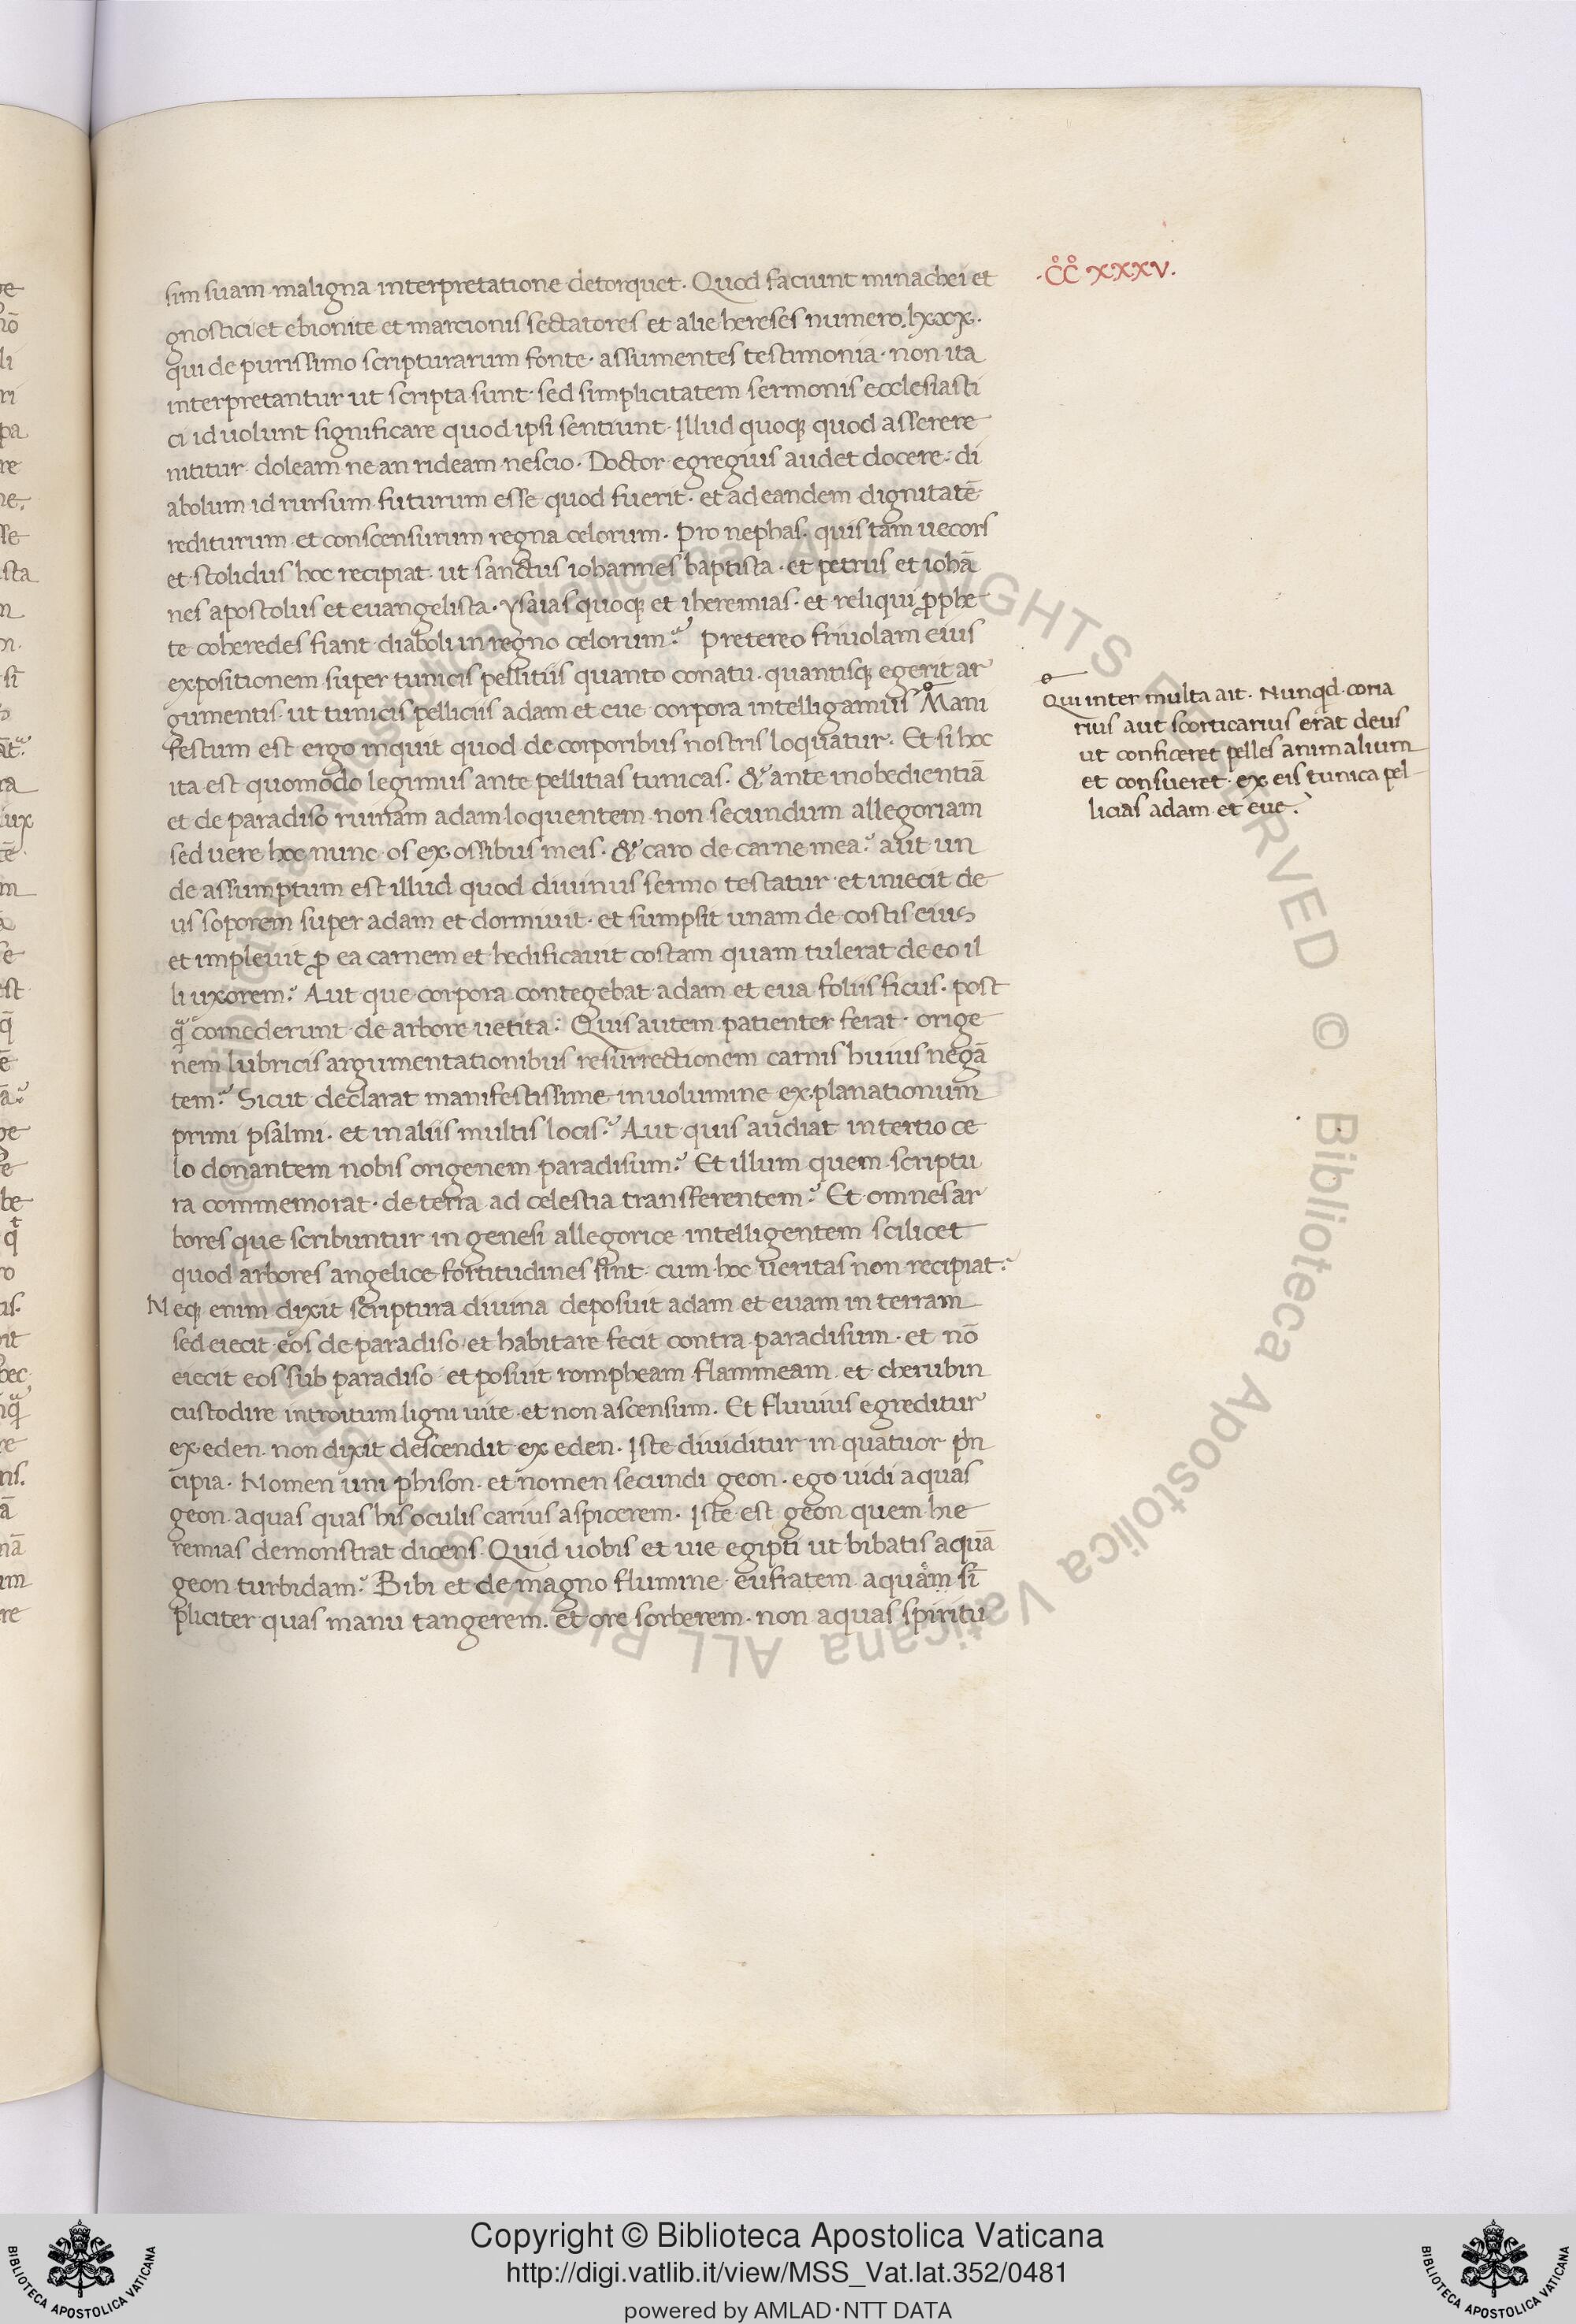 ·CC XXXV·
sim suam maligna interpretatione detorquet. Quod faciunt minachei et
gnostici et ebionite et marcionis sectatores et alie hereses numero .lxxx.
qui de purissimo scripturarum fonte· assumentes testimonia· non ita
interpretantur ut scripta sunt· sed simplicitatem sermonis ecclesiasti
ci id uolunt significare quod ipsi sentiunt· Illud quoqꝫ quod asserere
nititur· doleam ne an rideam nescio. Doctor egregius audet docere· di
abolum id rursum futurum esse quod fuerit· et ad eandem dignitatē
rediturum et conscensurum regna celorum. Pro nephas. quis tam uecors
et stolidus hoc recipiat· ut sanctus iohannes baptista· et petrus et iohā
nes apostolus et euangelista· ysaias quoqꝫ et iheremias· et reliqui ꝓphe
te coheredes fiant diaboli in regno celorum? Pretereo friuolam eius
expositionem super tunicis pellitiis quanto conatu. quantisqꝫ egerit ar
gumentis ut tunicis pelliciis adam et eue corpora intelligamus Mani
festum est ergo inquit quod de corporibus nostris loquatur. Et si hoc
ita est quomodo legimus ante pellitias tunicas. & ante inobedientiā
et de paradiso ruinam adam loquentem non secundum allegoriam
sed uere hoc nunc os ex ossibus meis. & caro de carne mea? aut un
de assumptum est illud quod diuinus sermo testatur et iniecit de
us soporem super adam et dormiuit· et sumpsit unam de costis eius
et impleuit ꝓ ea carnem et hedificauit costam quam tulerat de eo il
li uxorem? Aut que corpora contegebat adam et eua foliis ficus. post
qᵃ comederunt de arbore uetita? Quis autem patienter ferat· orige
nem lubricis argumentationibus resurrectionem carnis huius negā
tem? Sicut declarat manifestissime in uolumine explanationum
primi psalmi· et in aliis multis locis? Aut quis audiat in tertio ce
lo donantem nobis origenem paradisum? Et illum quem scriptu
ra commemorat· de terra ad celestia transferentem? Et omnes ar
bores que scribuntur in genesi allegorice intelligentem scilicet
quod arbores angelice fortitudines sint cum hoc ueritas non recipiat?
Neqꝫ enim dixit scriptura diuina deposuit adam et euam in terram
sed eiecit eos de paradiso et habitare fecit contra paradisum· et nō
eiecit eos sub paradiso et posuit rompheam flammeam et cherubin
custodire introitum ligni uite et non ascensum. Et fluuius egreditur
ex eden. non dixit descendit ex eden. Iste diuiditur in quatuor pⁱn
cipia. Nomen uni phison. et nomen secundi geon. ego uidi aquas
geon aquas quas his oculis carius aspicerem. Iste est geon quem hie
remias demonstrat dicens. Quid uobis et uie egipti ut bibatis aquā
geon turbidam? Bibi et de magno flumine eufratem aquam sī
pliciter quas manu tangerem. et ore sorberem· non aquas spiritu
Qui inter multa ait. Nunqd coria
rius aut scorticarius erat deus
ut conficeret pelles animalium
et consueret· ex eis tunica pel
licias adam et eue?
© Biblioteca Apostolica Vaticana ALL RIGHTS RESERVED
Copyright © Biblioteca Apostolica Vaticana
http://digi.vatlib.it/view/MSS_Vat.lat.352/0481
powered by AMLAD·NTT DATA
BIBLIOTECA APOSTOLICA VATICANA
BIBLIOTECA APOSTOLICA VATICANA